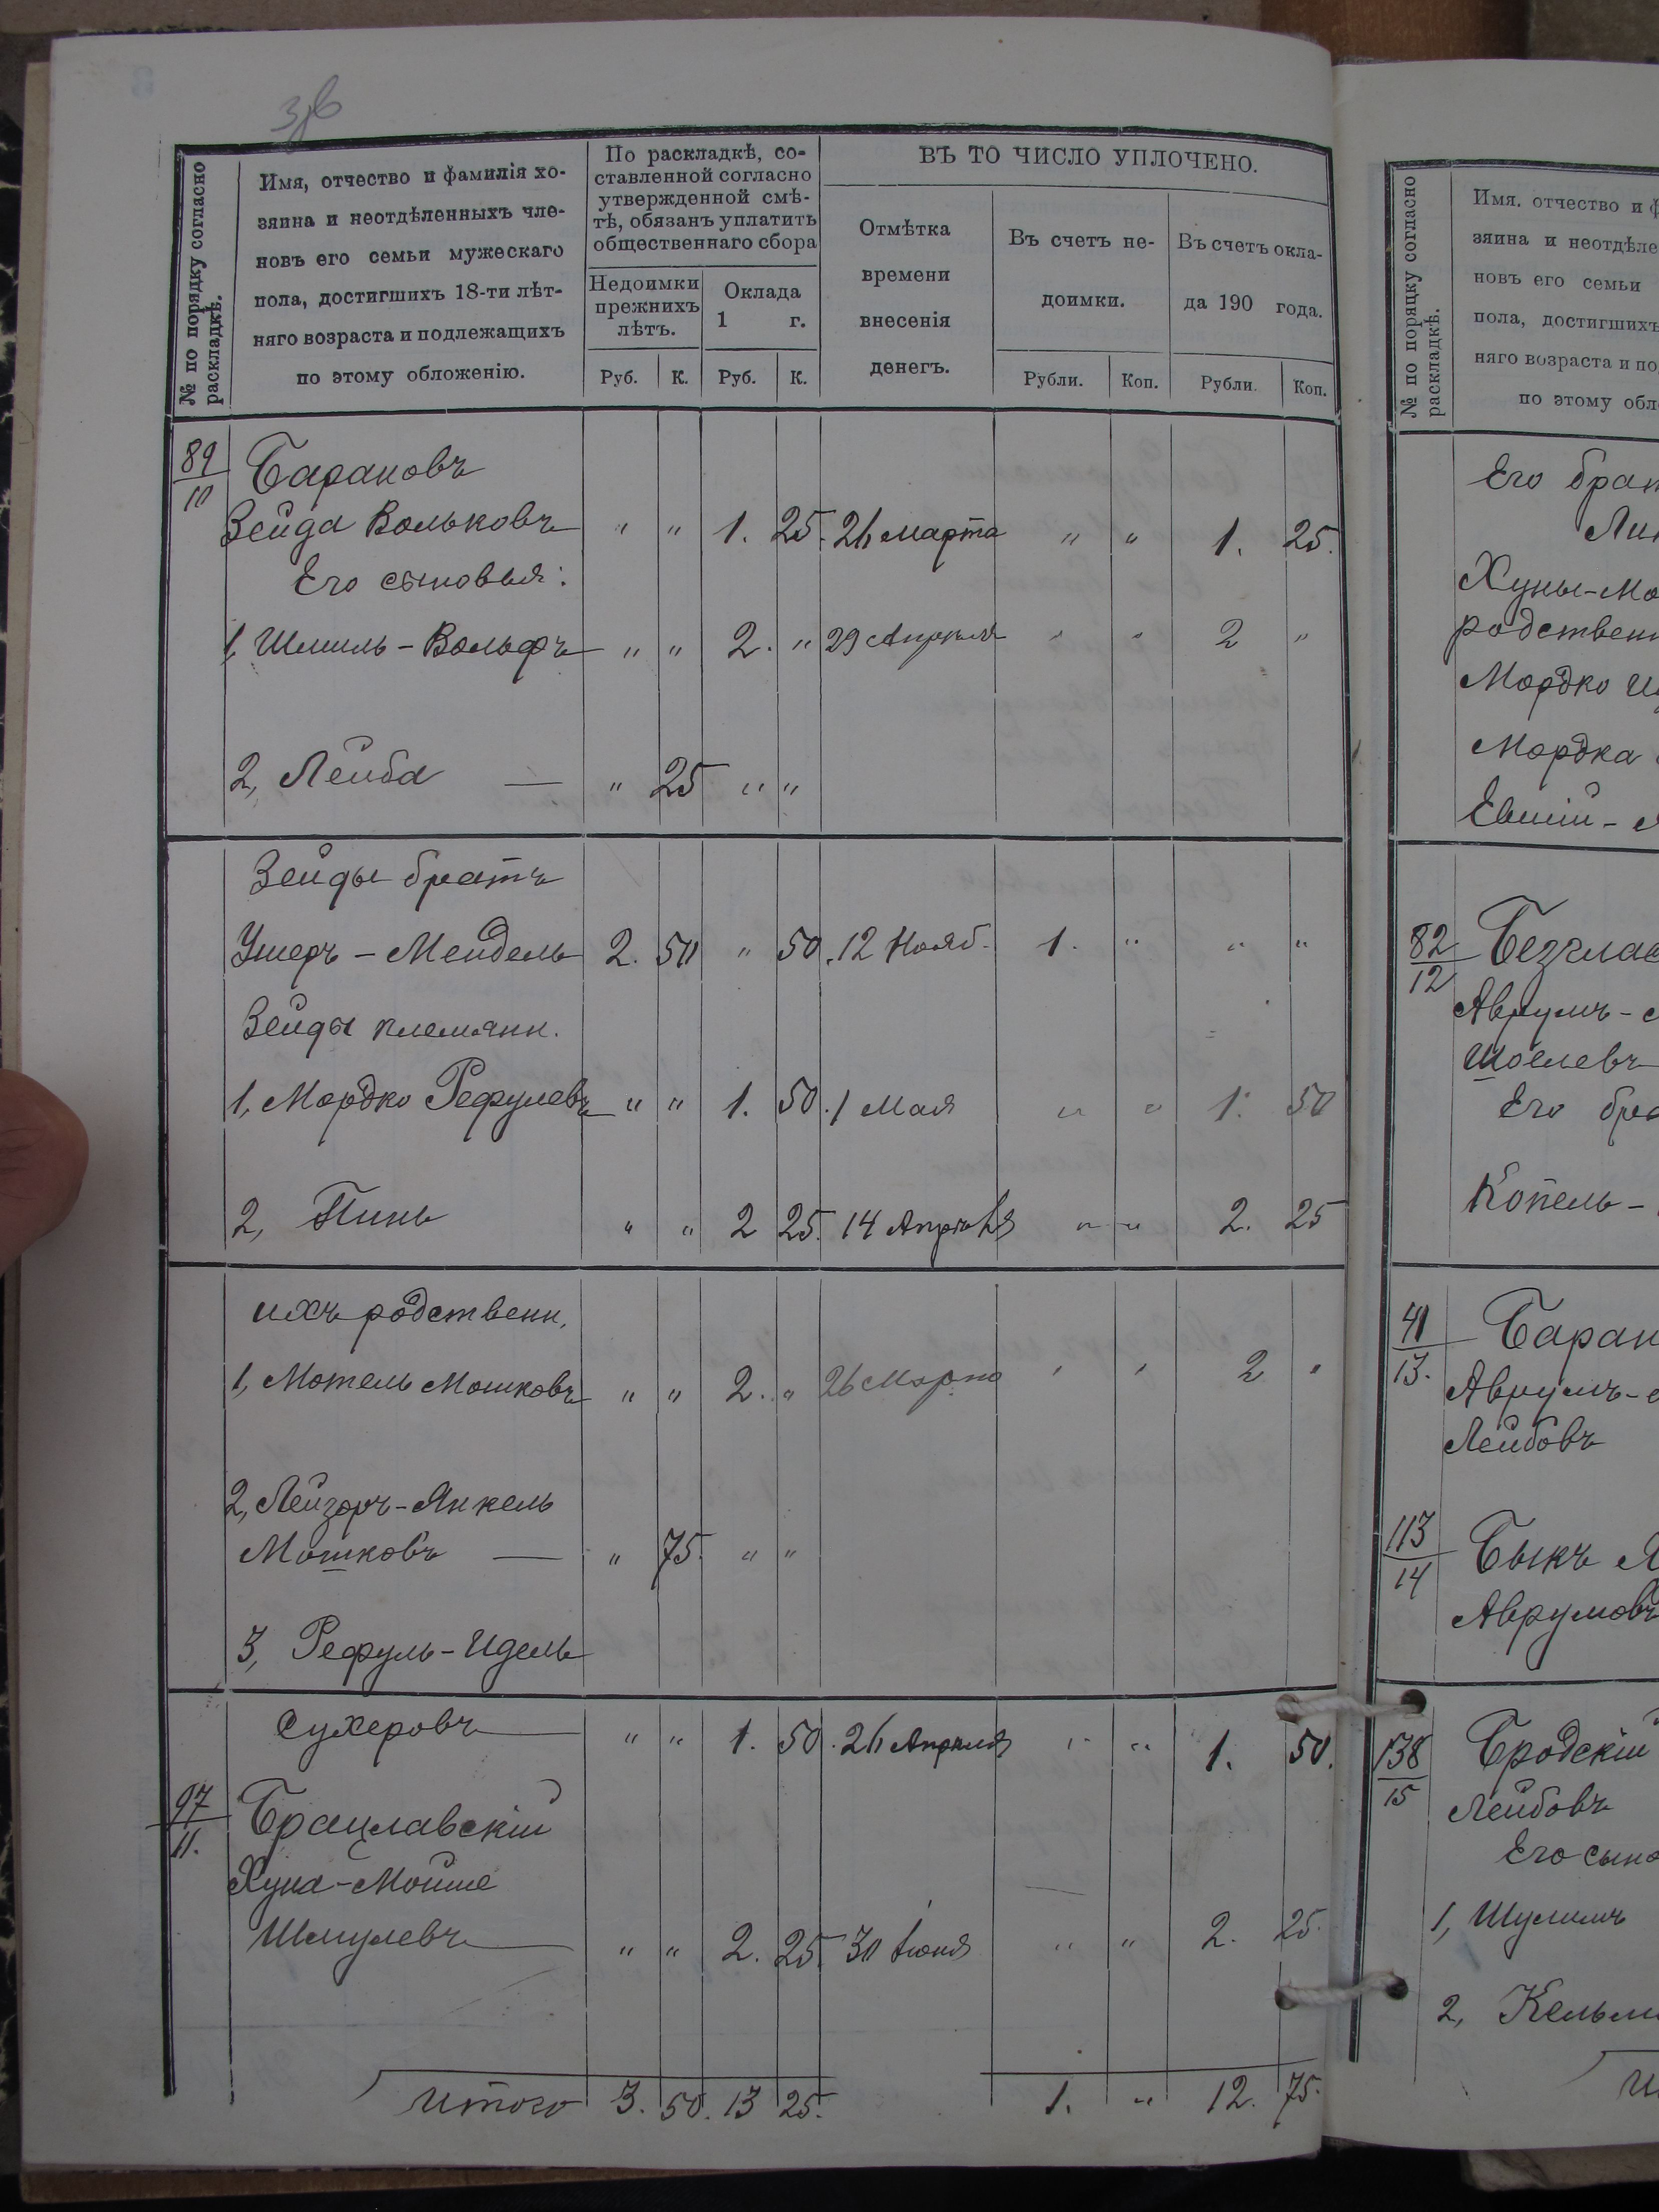 № по порядку согласно раскладкѣ.
Имя, отчество и фамилія хо-
зяина и неотдѣленныхъ чле-
новъ его семьи мужескаго
пола, достигшихъ 18-ти лѣт-
няго возраста и подлежащихъ
по этому обложенію.
По раскладкѣ, со-
ставленной согласно
утвержденной смѣ-
тѣ, обязанъ уплатить
общественнаго сбора
Недоимки
прежнихъ
лѣтъ.
Оклада
1 г.
Руб. К. Руб. К.
ВЪ ТО ЧИСЛО УПЛОЧЕНО.
Отмѣтка
времени
внесенія
денегъ.
Въ счетъ не-
доимки.
Въ счетъ окла-
да 190 года.
Рубли. Коп. Рубли. Коп.
89/10 Барановъ
Зейда Вольковъ " " 1. 25. 26 Марта " " 1. 25.
Его сыновья:
1, Шмиль-Вольфъ " " 2. " 29 Апрѣля " " 2 "
2, Лейба — " 25 " "
Зейды братъ
Ушеръ-Мендель 2. 50 " 50. 12 Нояб. 1. " " "
Зейды племянн.
1, Мордко Рефулевъ " " 1. 50. 1 Мая " " 1. 50
2, Пинь " " 2 25. 14 Апрѣля " " 2. 25
ихъ родственн.
1, Мотель Мошковъ " " 2. " 26 Марта " " 2 "
2, Лейзоръ-Янкель
Мошковъ — " 75. " "
3, Рефуль-Идель
Сухеровъ " " 1. 50. 26 Апрѣля " " 1. 50.
97/11. Брацлавскій
Хуна-Мойше
Шмулевъ " " 2. 25. 30 Іюня " " 2. 25.
Итого 3. 50. 13 25. 1. " 12. 75.
№ по порядку согласно раскладкѣ.
Имя. отчество и ф
зяина и неотдѣле
новъ его семьи
пола, достигшихъ
няго возраста и по
по этому обл
Его брат
Хуны-Мо
родственн
Мордко
Мордка
82/12 Безглас
Аврумъ-
Шоелевъ
Его бра
Копель-
41/13. Баран
Аврумъ-
Лейбовъ
113/14 Быкъ
Аврумовъ
138/15 Бродскій
Лейбовъ
Его сыно
1, Шулимъ
2, Кельм